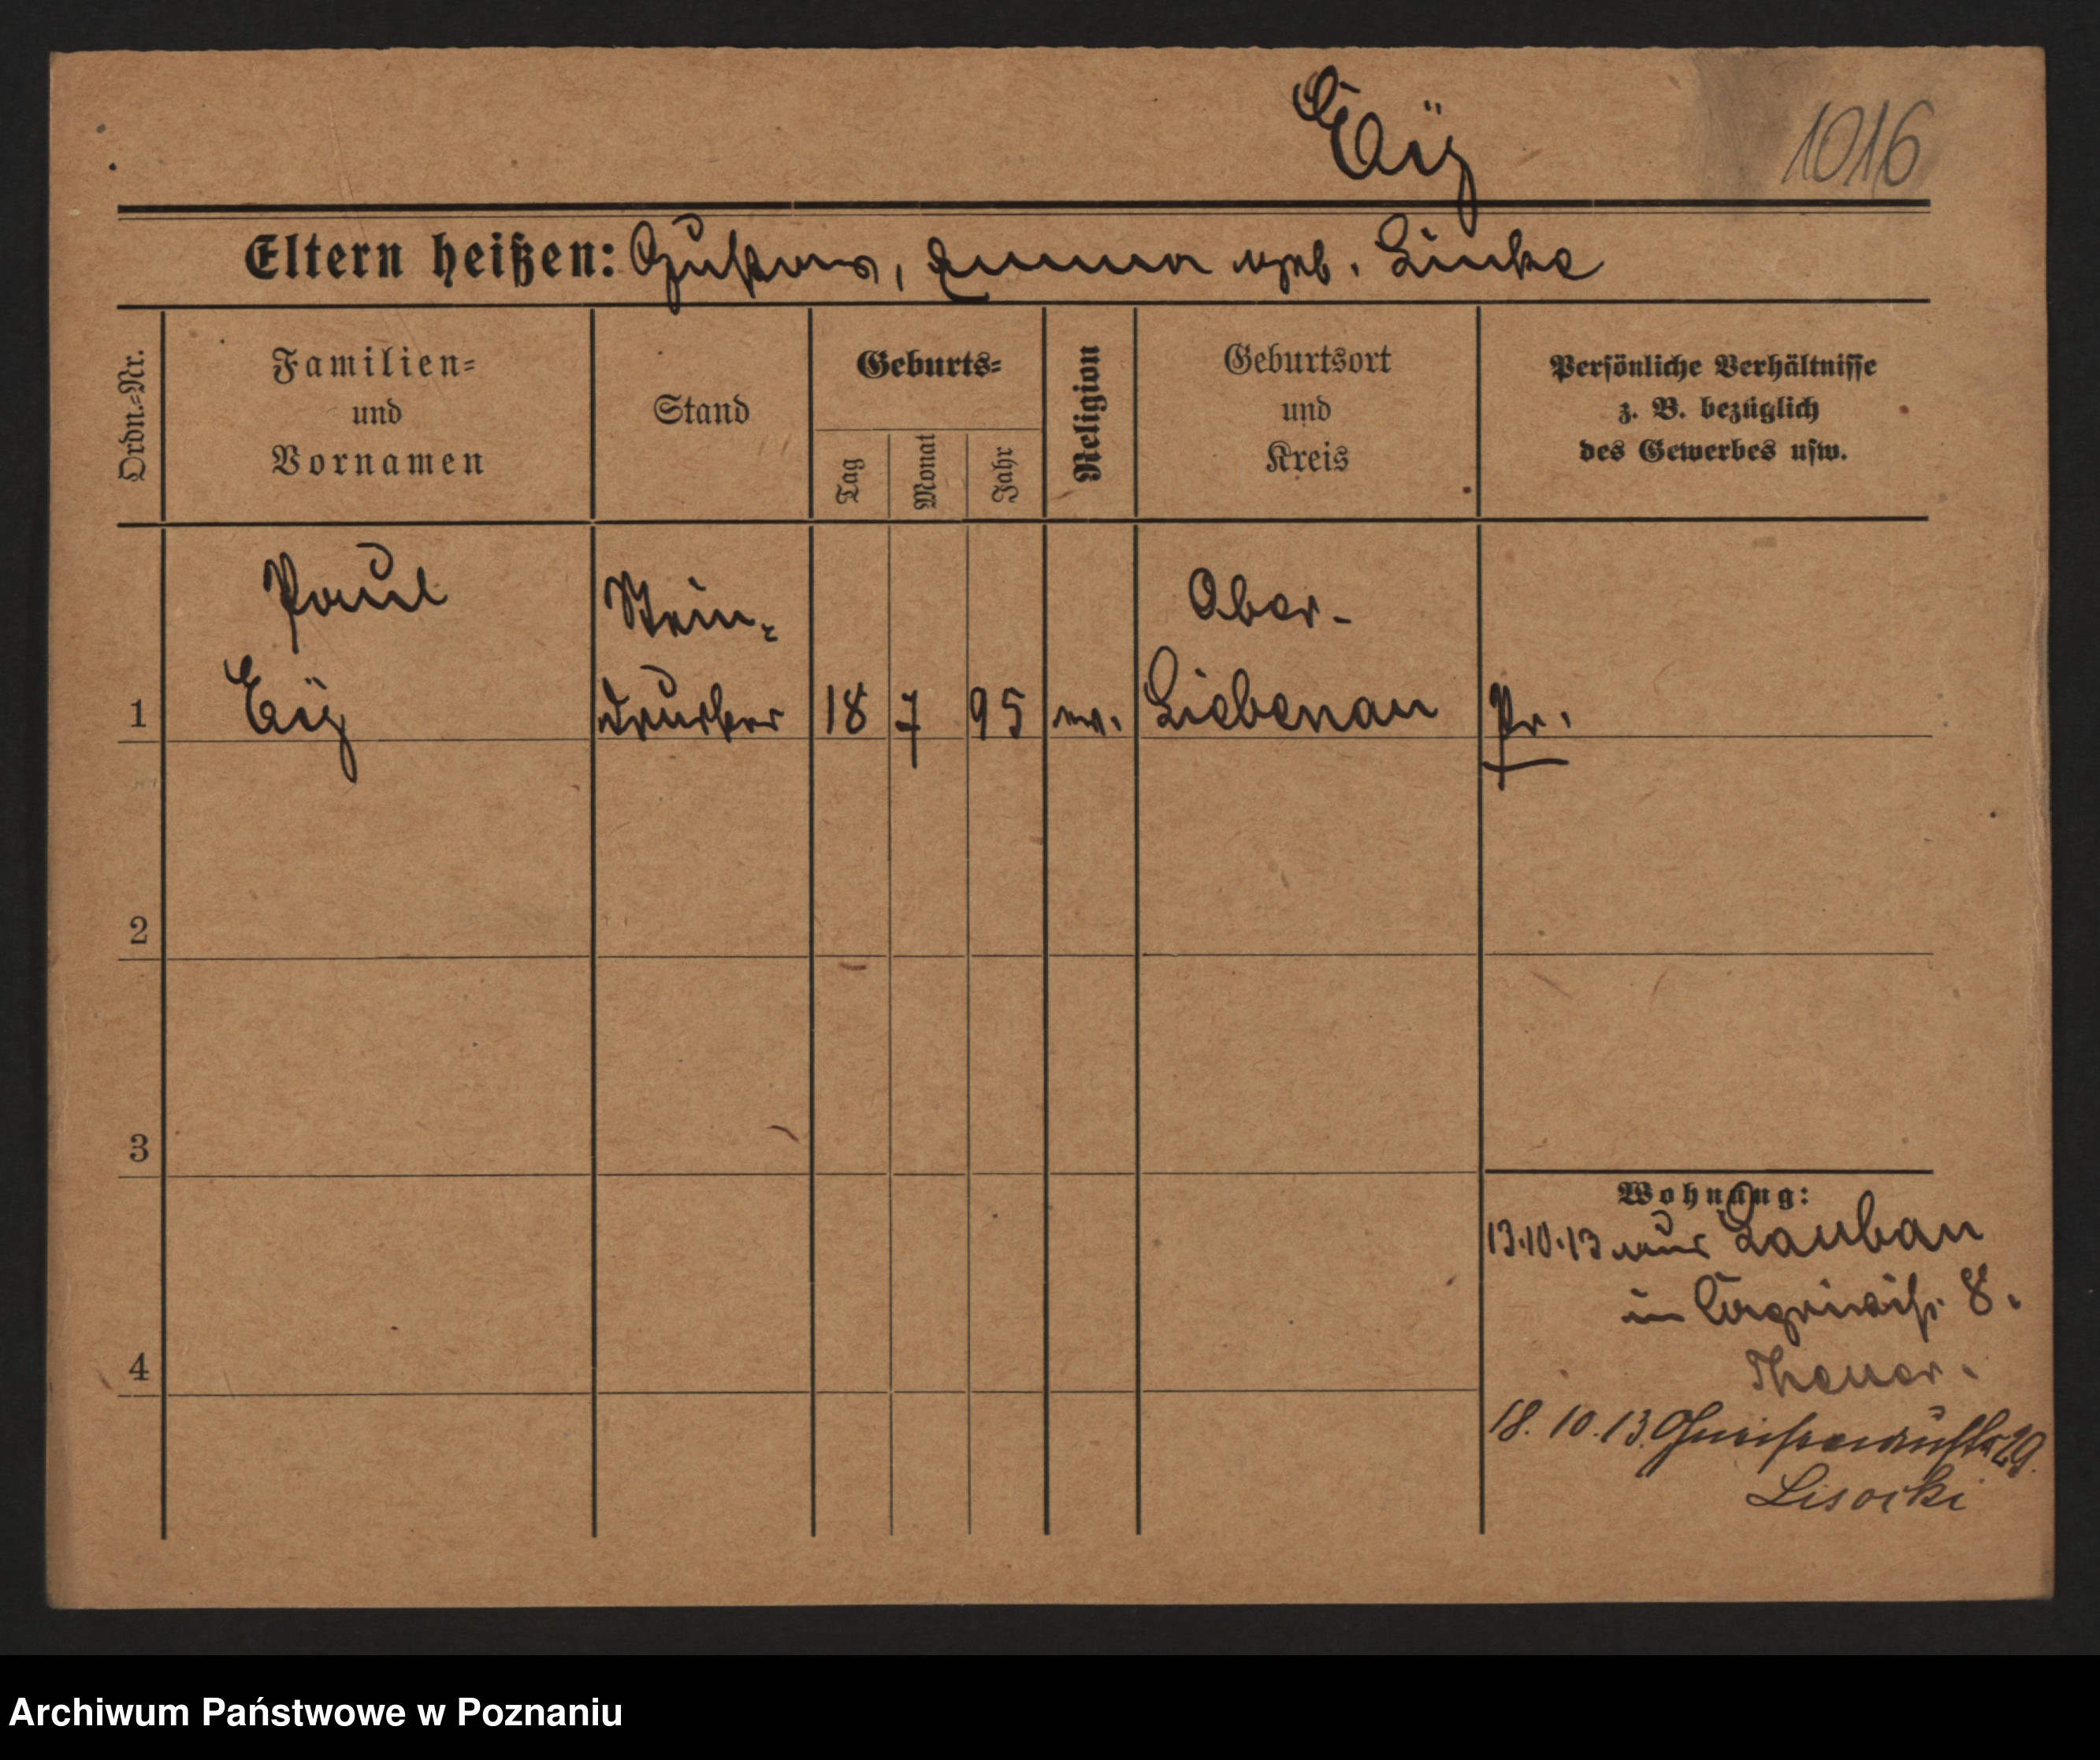 1016
Eltern heißen: Gustav, Emma geb. Linke
Ordn.=Nr.
Familien=
und
Vornamen
Stand
Geburts=
Tag
Monat
Jahr
Religion
Geburtsort
und
Kreis
Persönliche Verhältnisse
z. B. bezüglich
des Gewerbes usw.
Paul
Stein=
Ober-
1
drucker 18 7 95 ev. Liebenau Pr.
2
3
4
Wohnung:
13.10.13 aus Lauban
8.
18.10.13. Gneisenaustr 29.
Lisocki
Archiwum Państwowe w Poznaniu